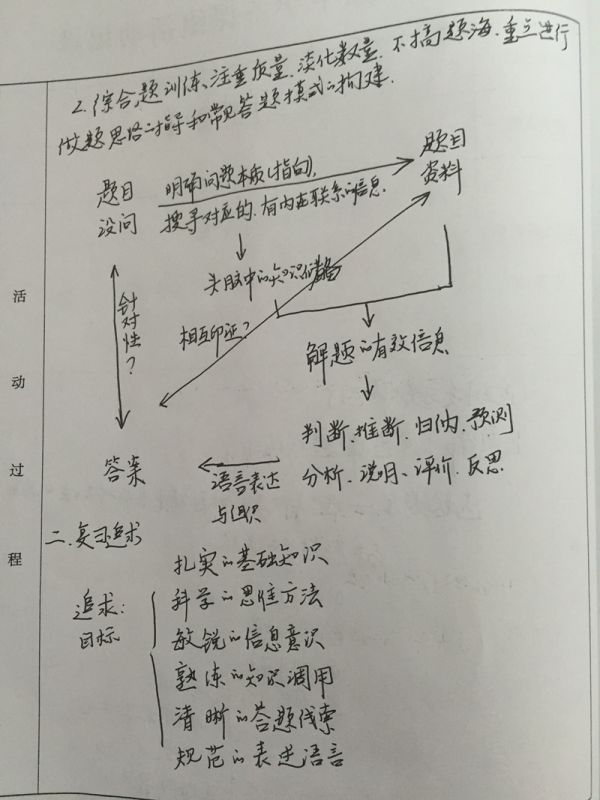 2. 综合题训练、注重质量、淡化数量、不搞题海、重点进行
做题思路的指导和常见答题模式的构建.
题目
设问
明确问题本质(指向),
搜寻对应的、有内在联系的信息.
题目
资料
头脑中的知识储备
针对性?
相互印证?
解题的有效信息
判断、推断、归纳、预测
分析、说明、评价、反思
答案
语言表达
与组织
二、复习追求
追求:
目标
扎实的基础知识
科学的思维方法
敏锐的信息意识
熟练的知识调用
清晰的答题线索
规范的表述语言
活
动
过
程